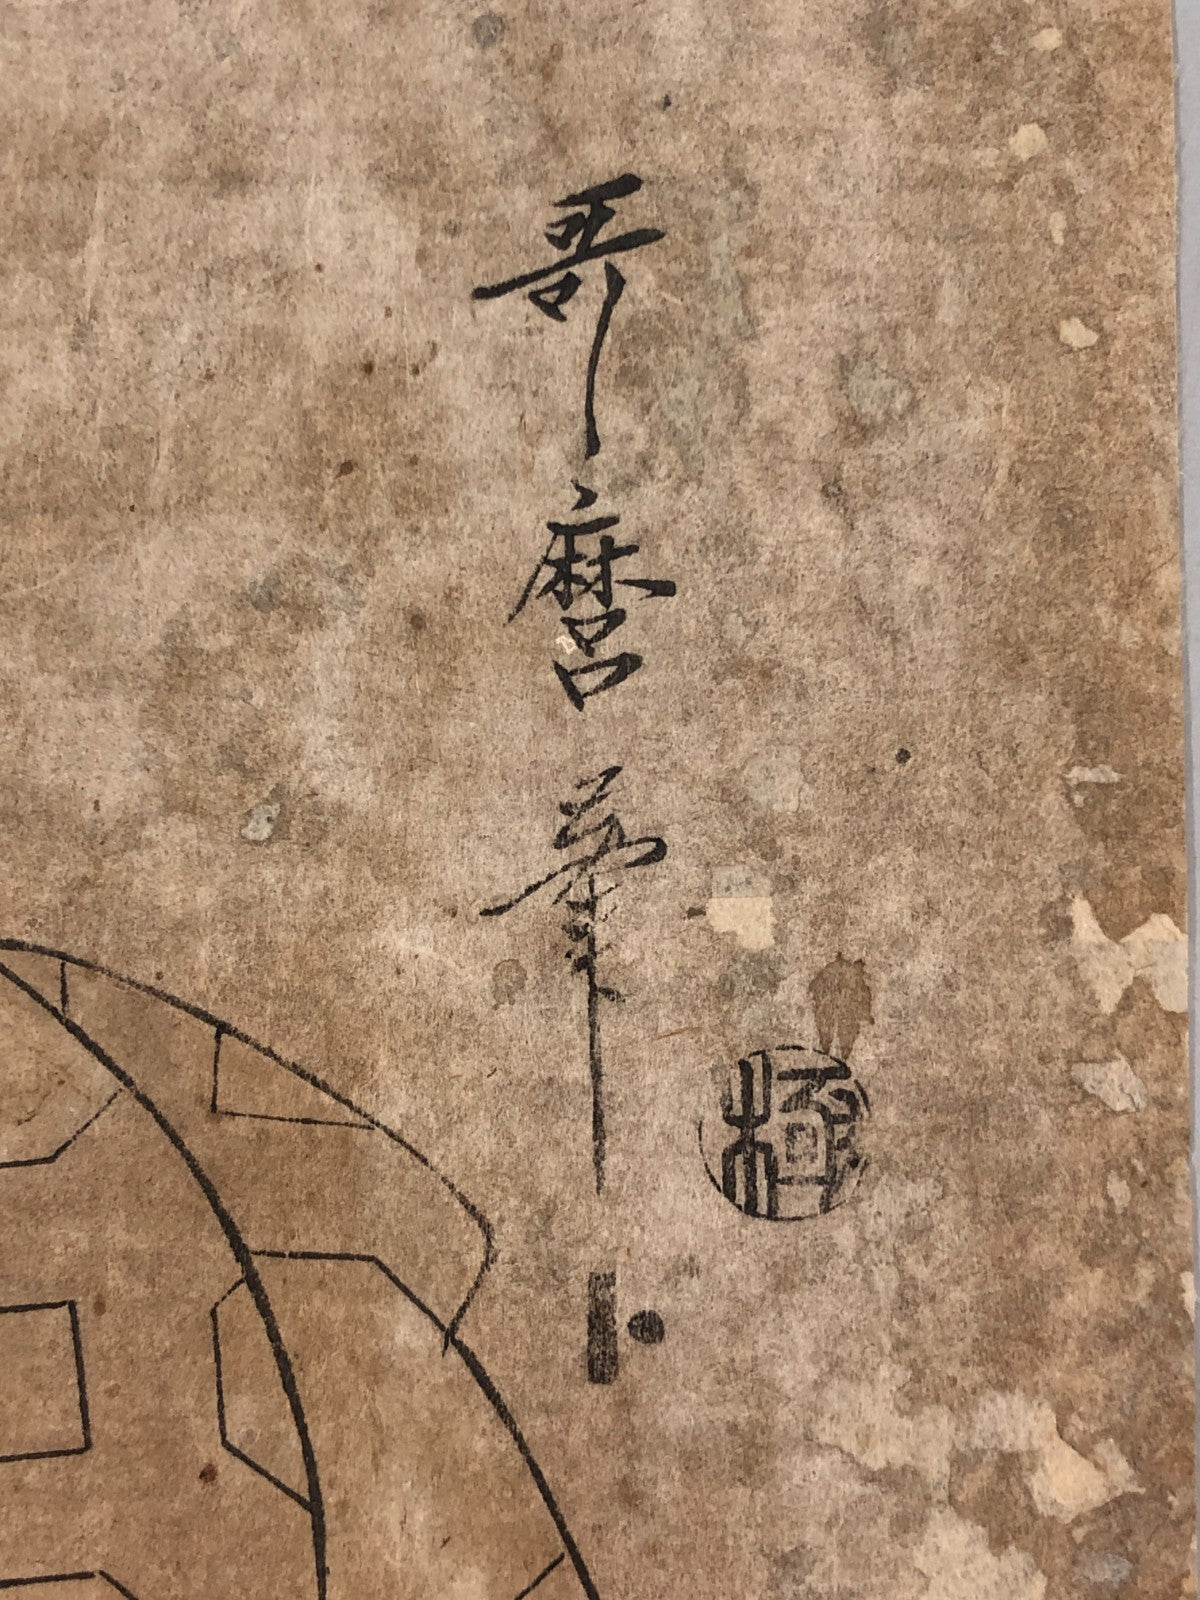 哥麿筆
極